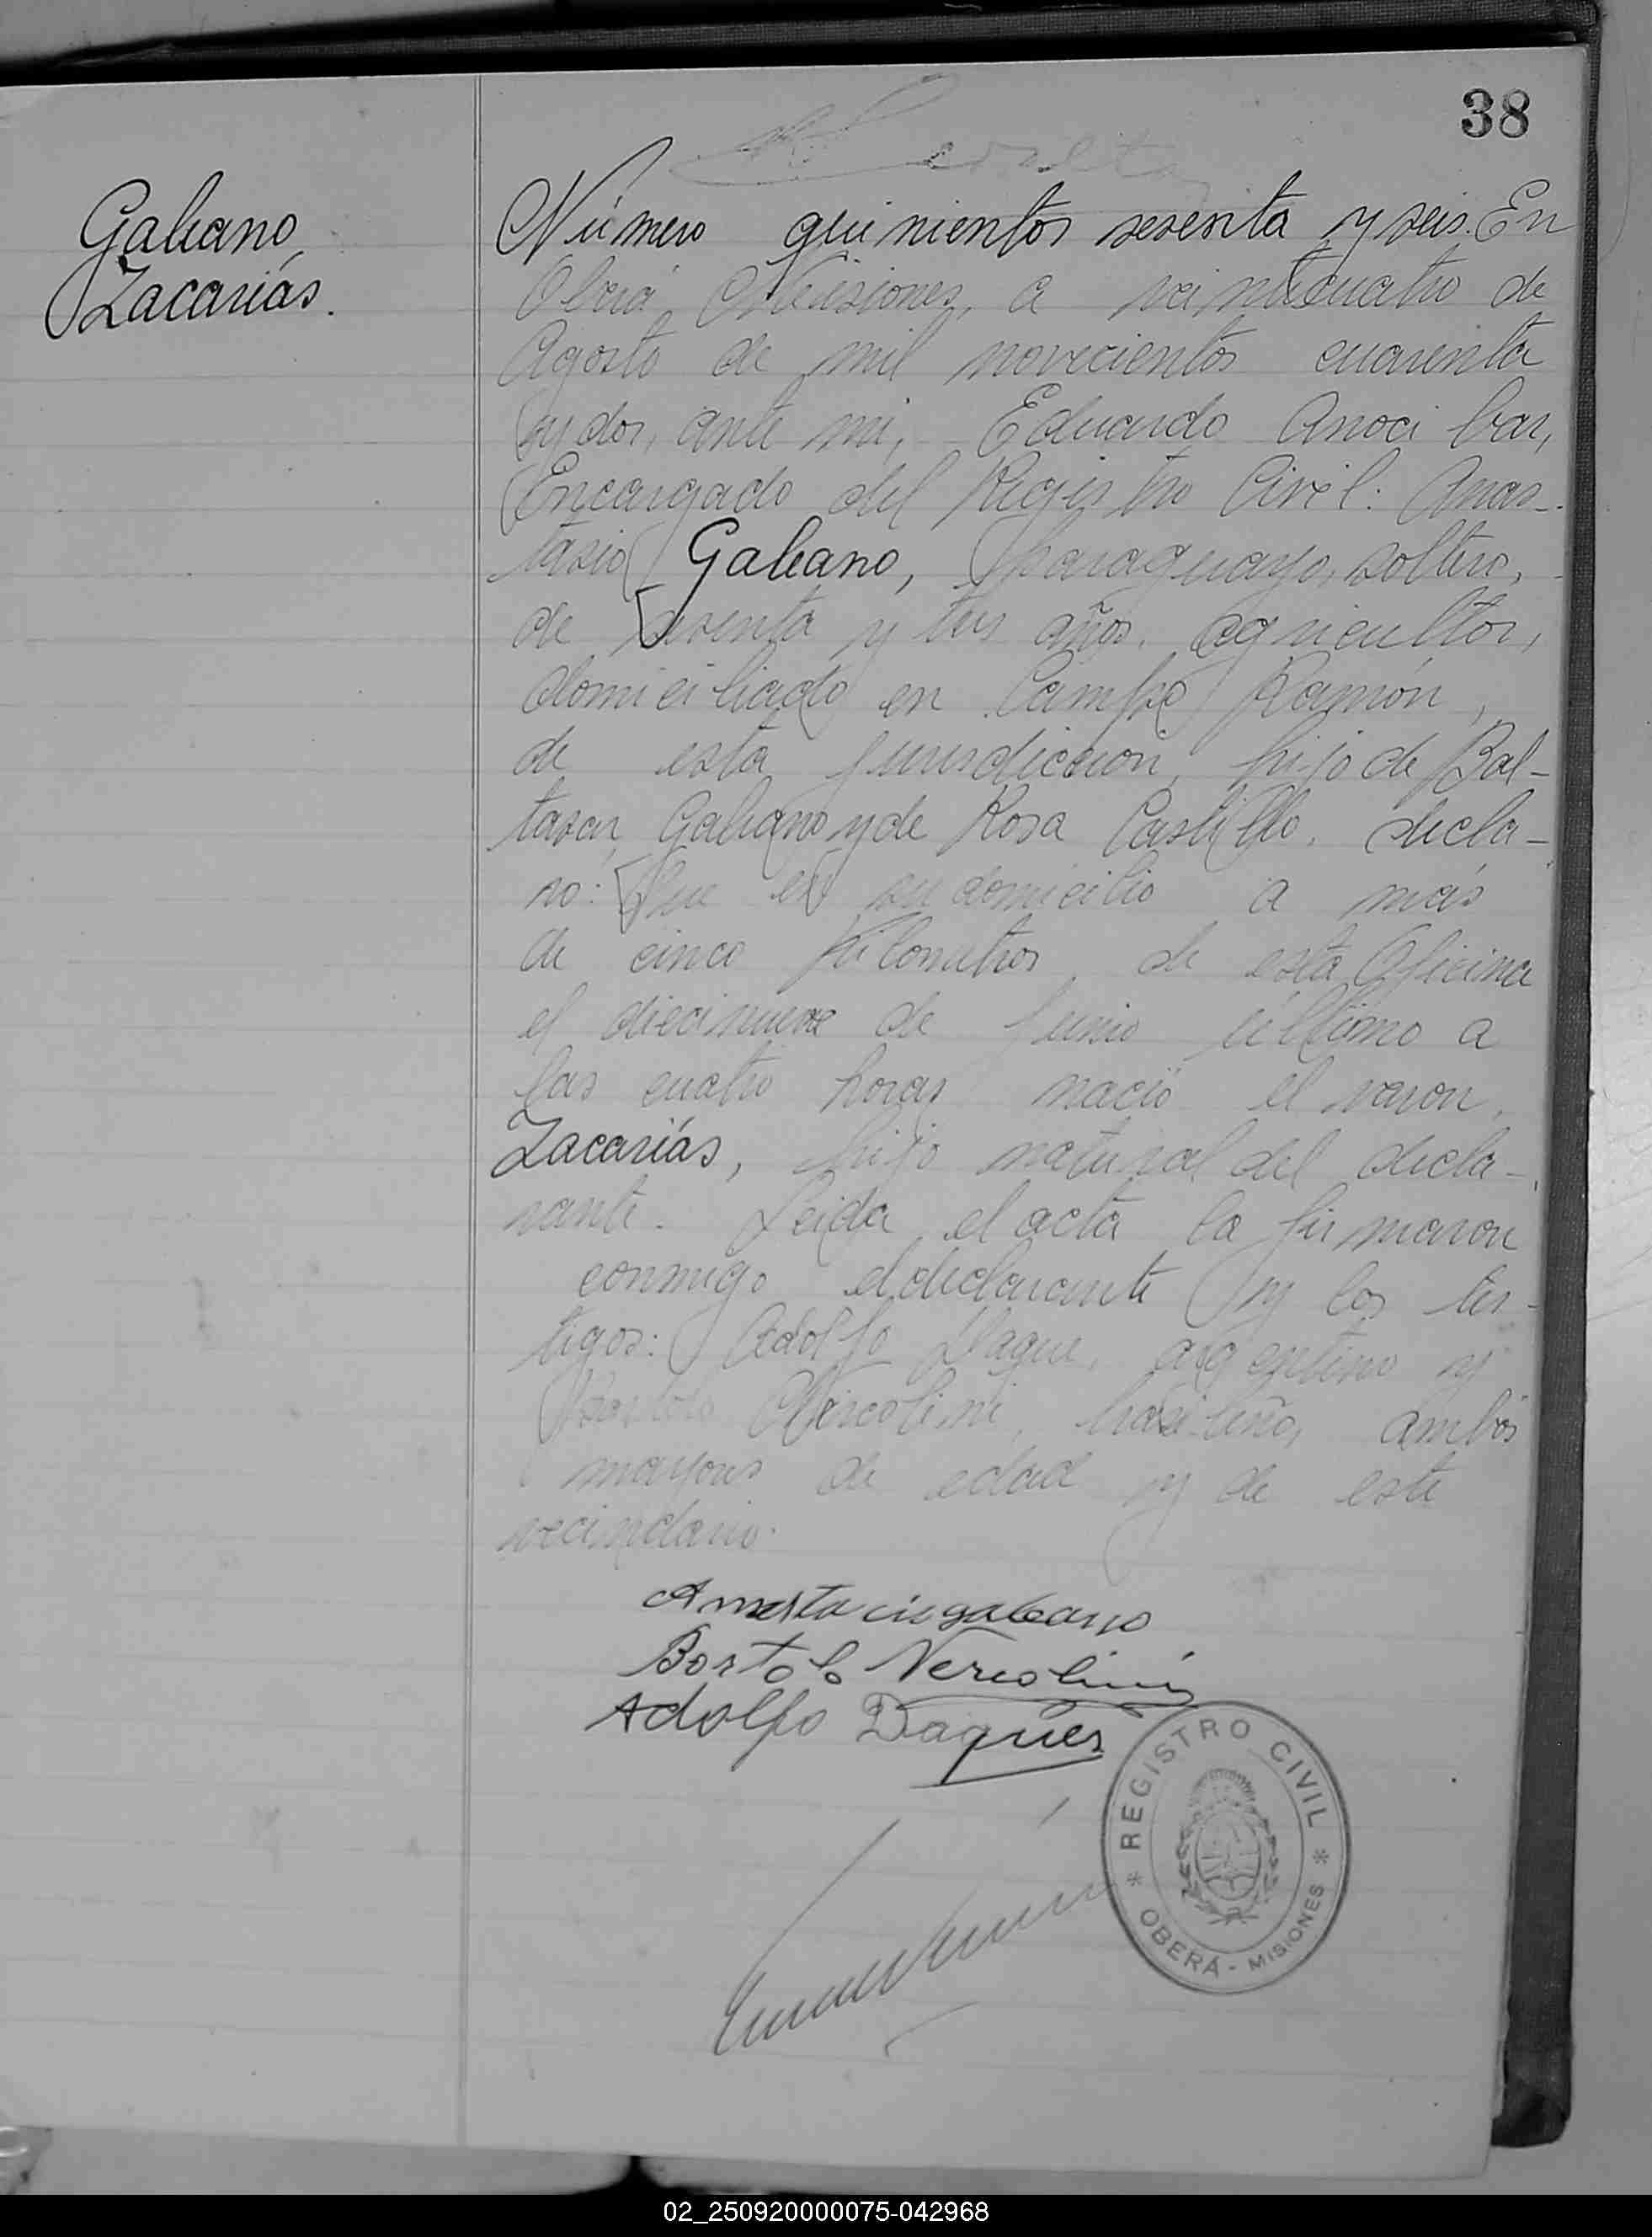 38
Galeano,
Zacarías.
Número quinientos sesenta y seis. En
Oberá, Misiones, a veinticuatro de
Agosto de mil novecientos cuarenta
y dos, ante mi, Eduardo Anocibar,
Encargado del Registro Civil: Anas-
tasio Galeano, paraguayo, soltero,
de sesenta y tres años, agricultor,
domiciliado en Campo Ramón,
de esta jurisdicción, hijo de Bal-
tasar Galeano y de Rosa Castillo, decla-
ro: Que en su domicilio a más
de cinco kilometros de esta Oficina
el diecinueve de Junio último a
las cuatro horas nació el varon,
Zacarías, hijo natural del decla-
rante. Leida el acta la firmaron
conmigo el declarante y los tes-
tigos: Adolfo Daque, argentino y
Bortolo Nercolini, brasileño, ambos
mayores de edad y de este
vecindario.
Anastacio galeano
Bortolo Nercolini
Adolfo Daques
REGISTRO CIVIL
OBERÁ - MISIONES
02_250920000075-042968